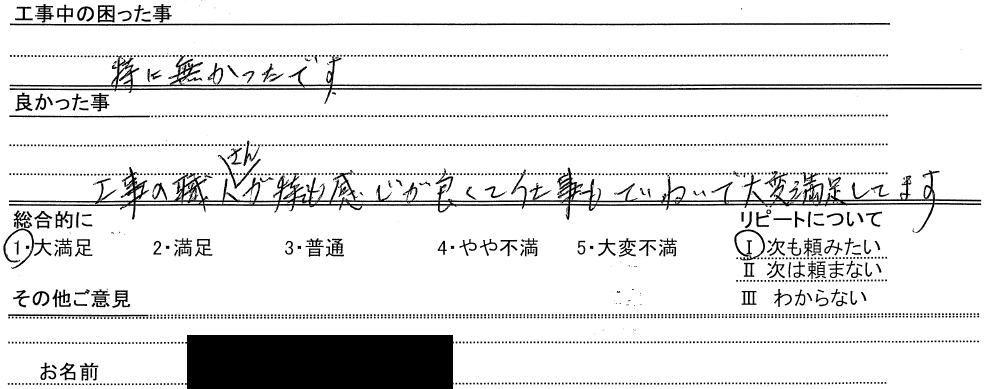 工事中の困った事
特に無かったです
良かった事
工事の職人さんが特も感じが良くて仕事もていねいで大変満足してます
総合的に
リピートについて
1・大満足 2・満足 3・普通 4・やや不満 5・大変不満
Ⅰ 次も頼みたい
Ⅱ 次は頼まない
その他ご意見
Ⅲ わからない
お名前